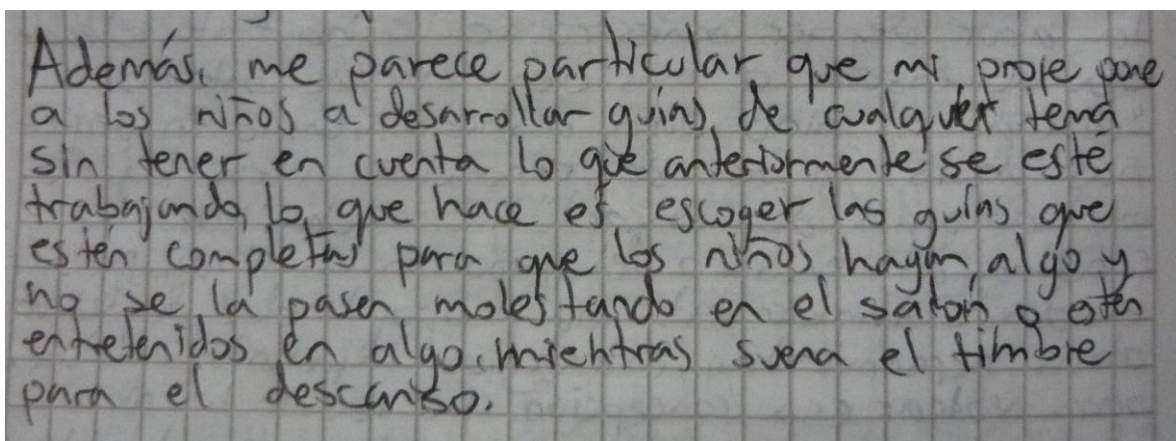 Además, me parece particular que mi profe pone
a los niños a desarrollar guías, de cualquier tema
sin tener en cuenta lo que anteriormente se esté
trabajando, lo que hace es escoger las guías que
estén completas para que los niños hagan algo y
no se la pasen molestando en el salón o estén
entretenidos en algo mientras suena el timbre
para el descanso.